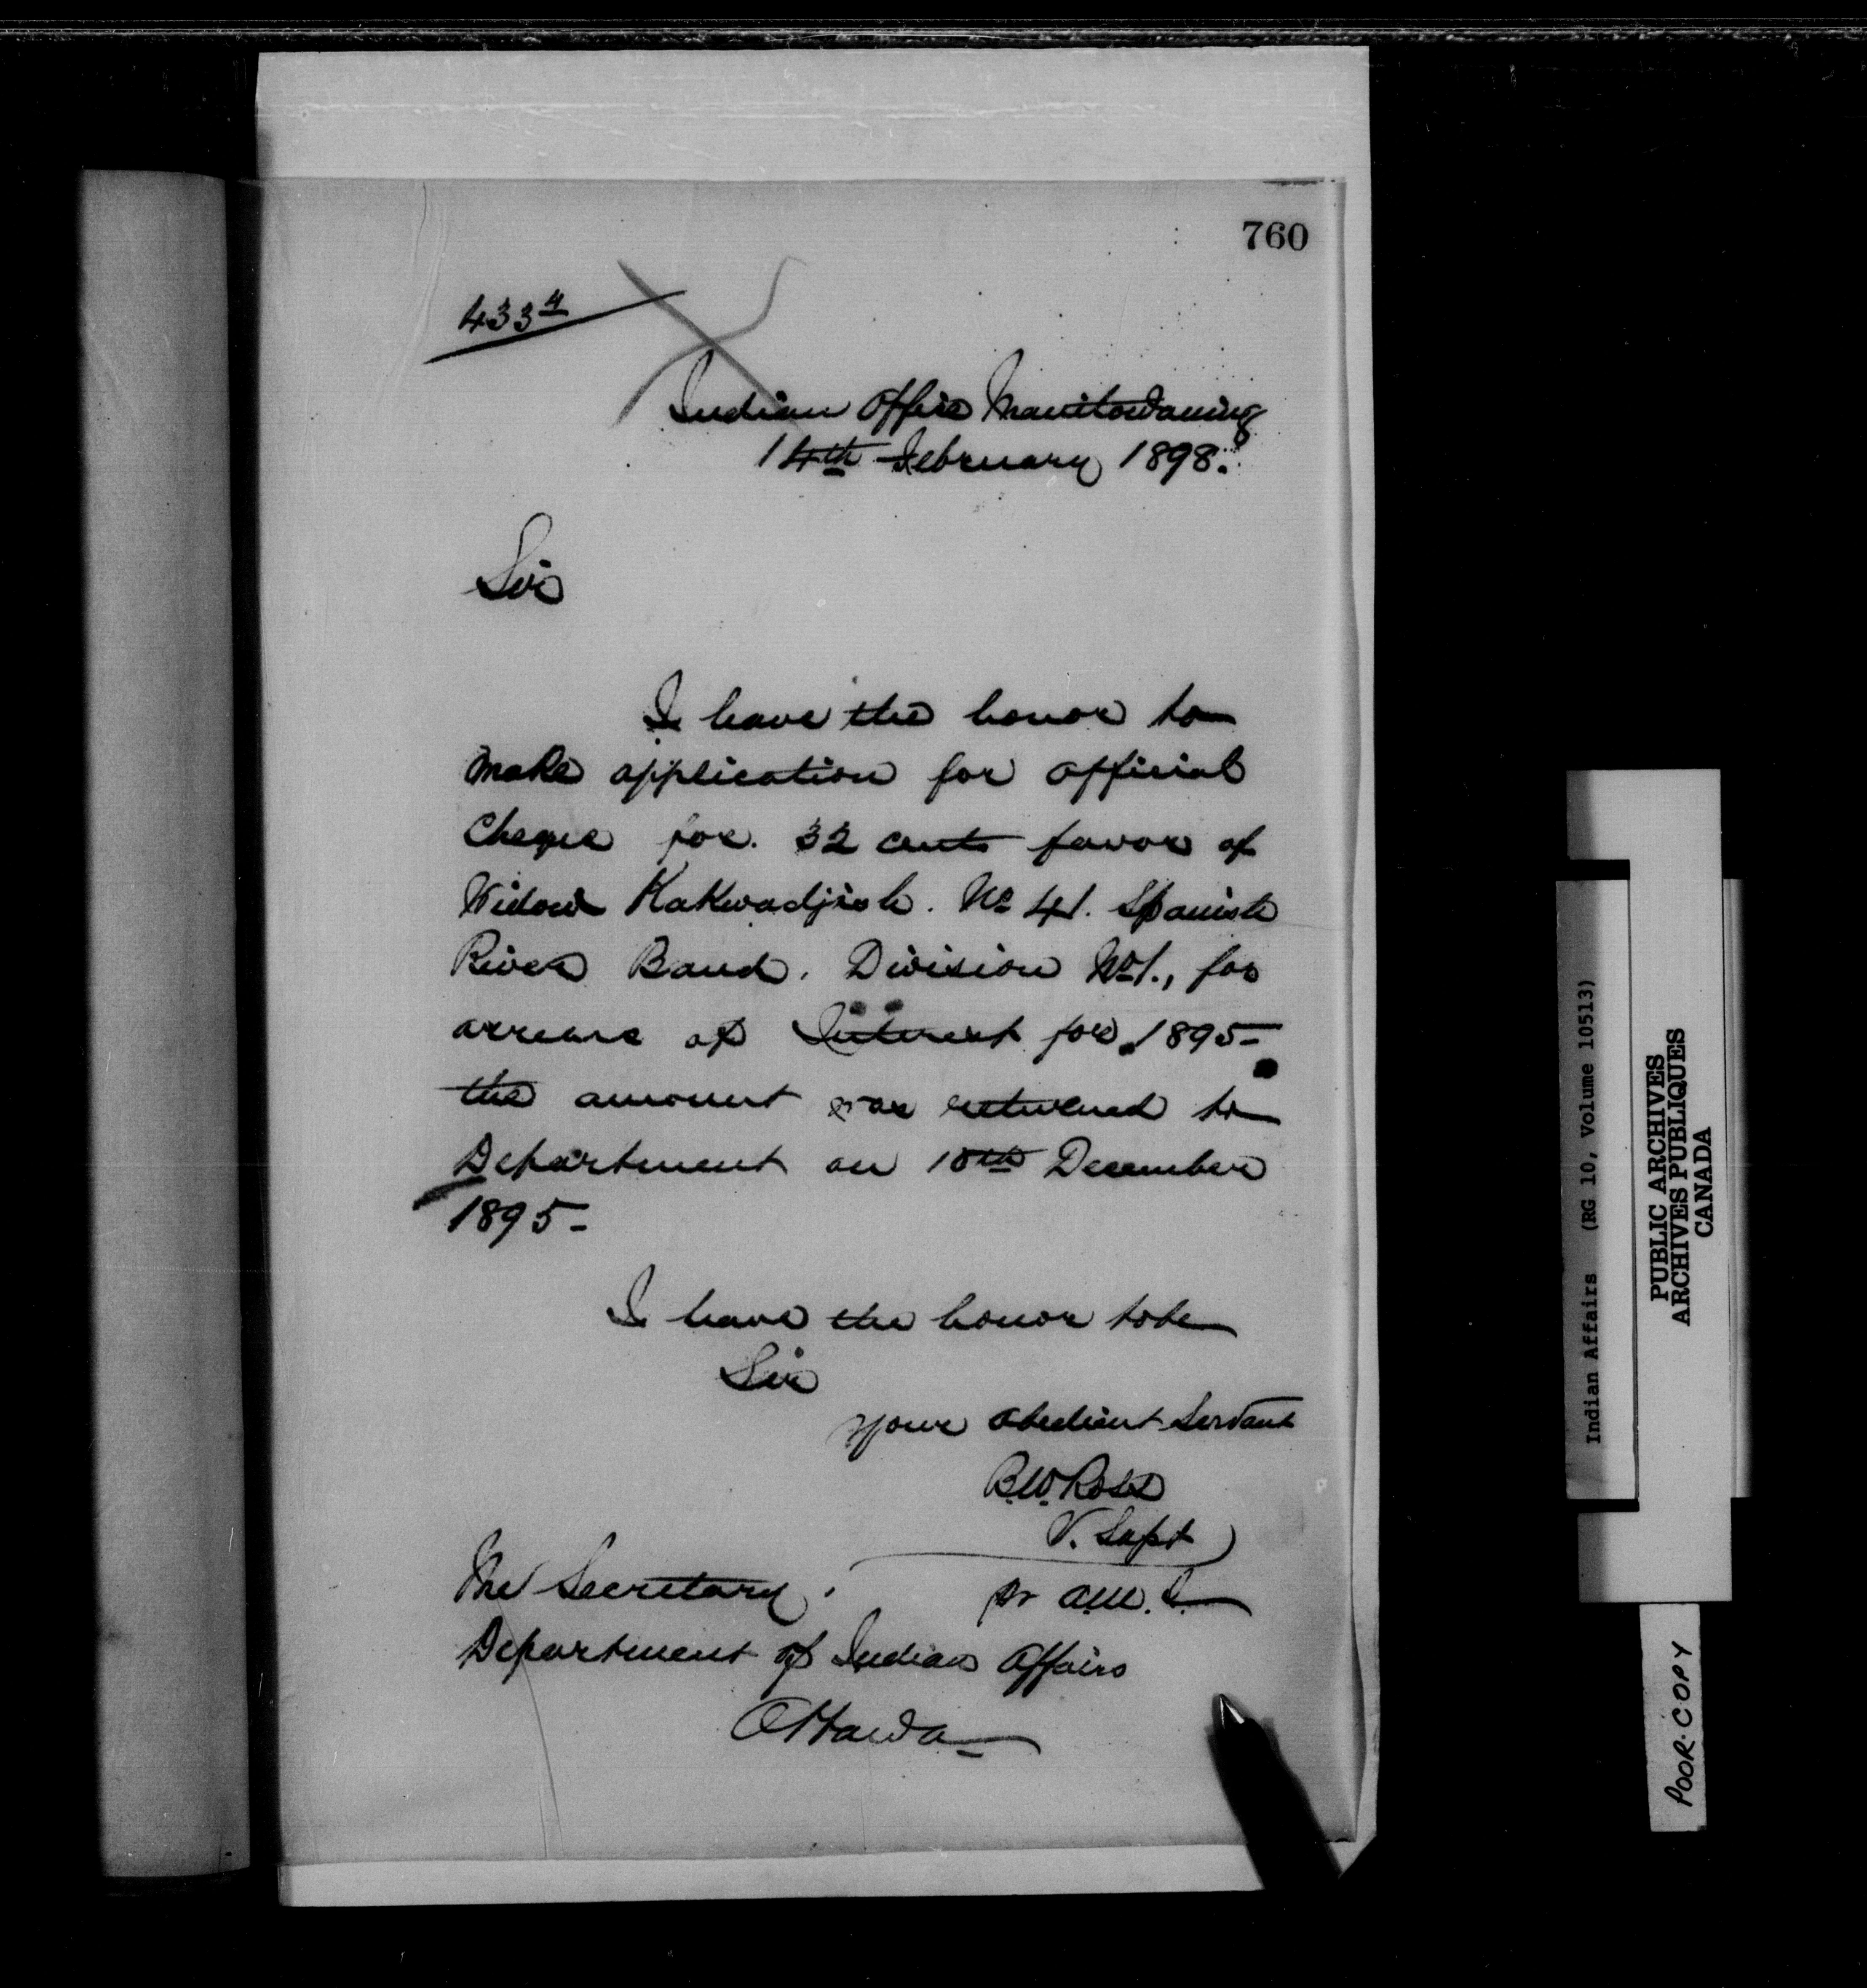 760
433 4
Indian Office Manitowaning
14th February 1898.
Sir
I have the honor to
make application for official
Cheque for. 32 cents favor of
Widow Kakwadjish. No 41. Spanish
River Band. Division No 1., for
arrears of Interest for 1895-
the amount was returned to
Department on 10th December
1895-
I have the honor to be
Sir
Your obedient Servant
B.W. Ross
V. Supt
The Secretary. pr
Department of Indian Affairs
Ottawa
Indian Affairs (RG 10, Volume 10513)
PUBLIC ARCHIVES
ARCHIVES PUBLIQUES
CANADA
POOR COPY